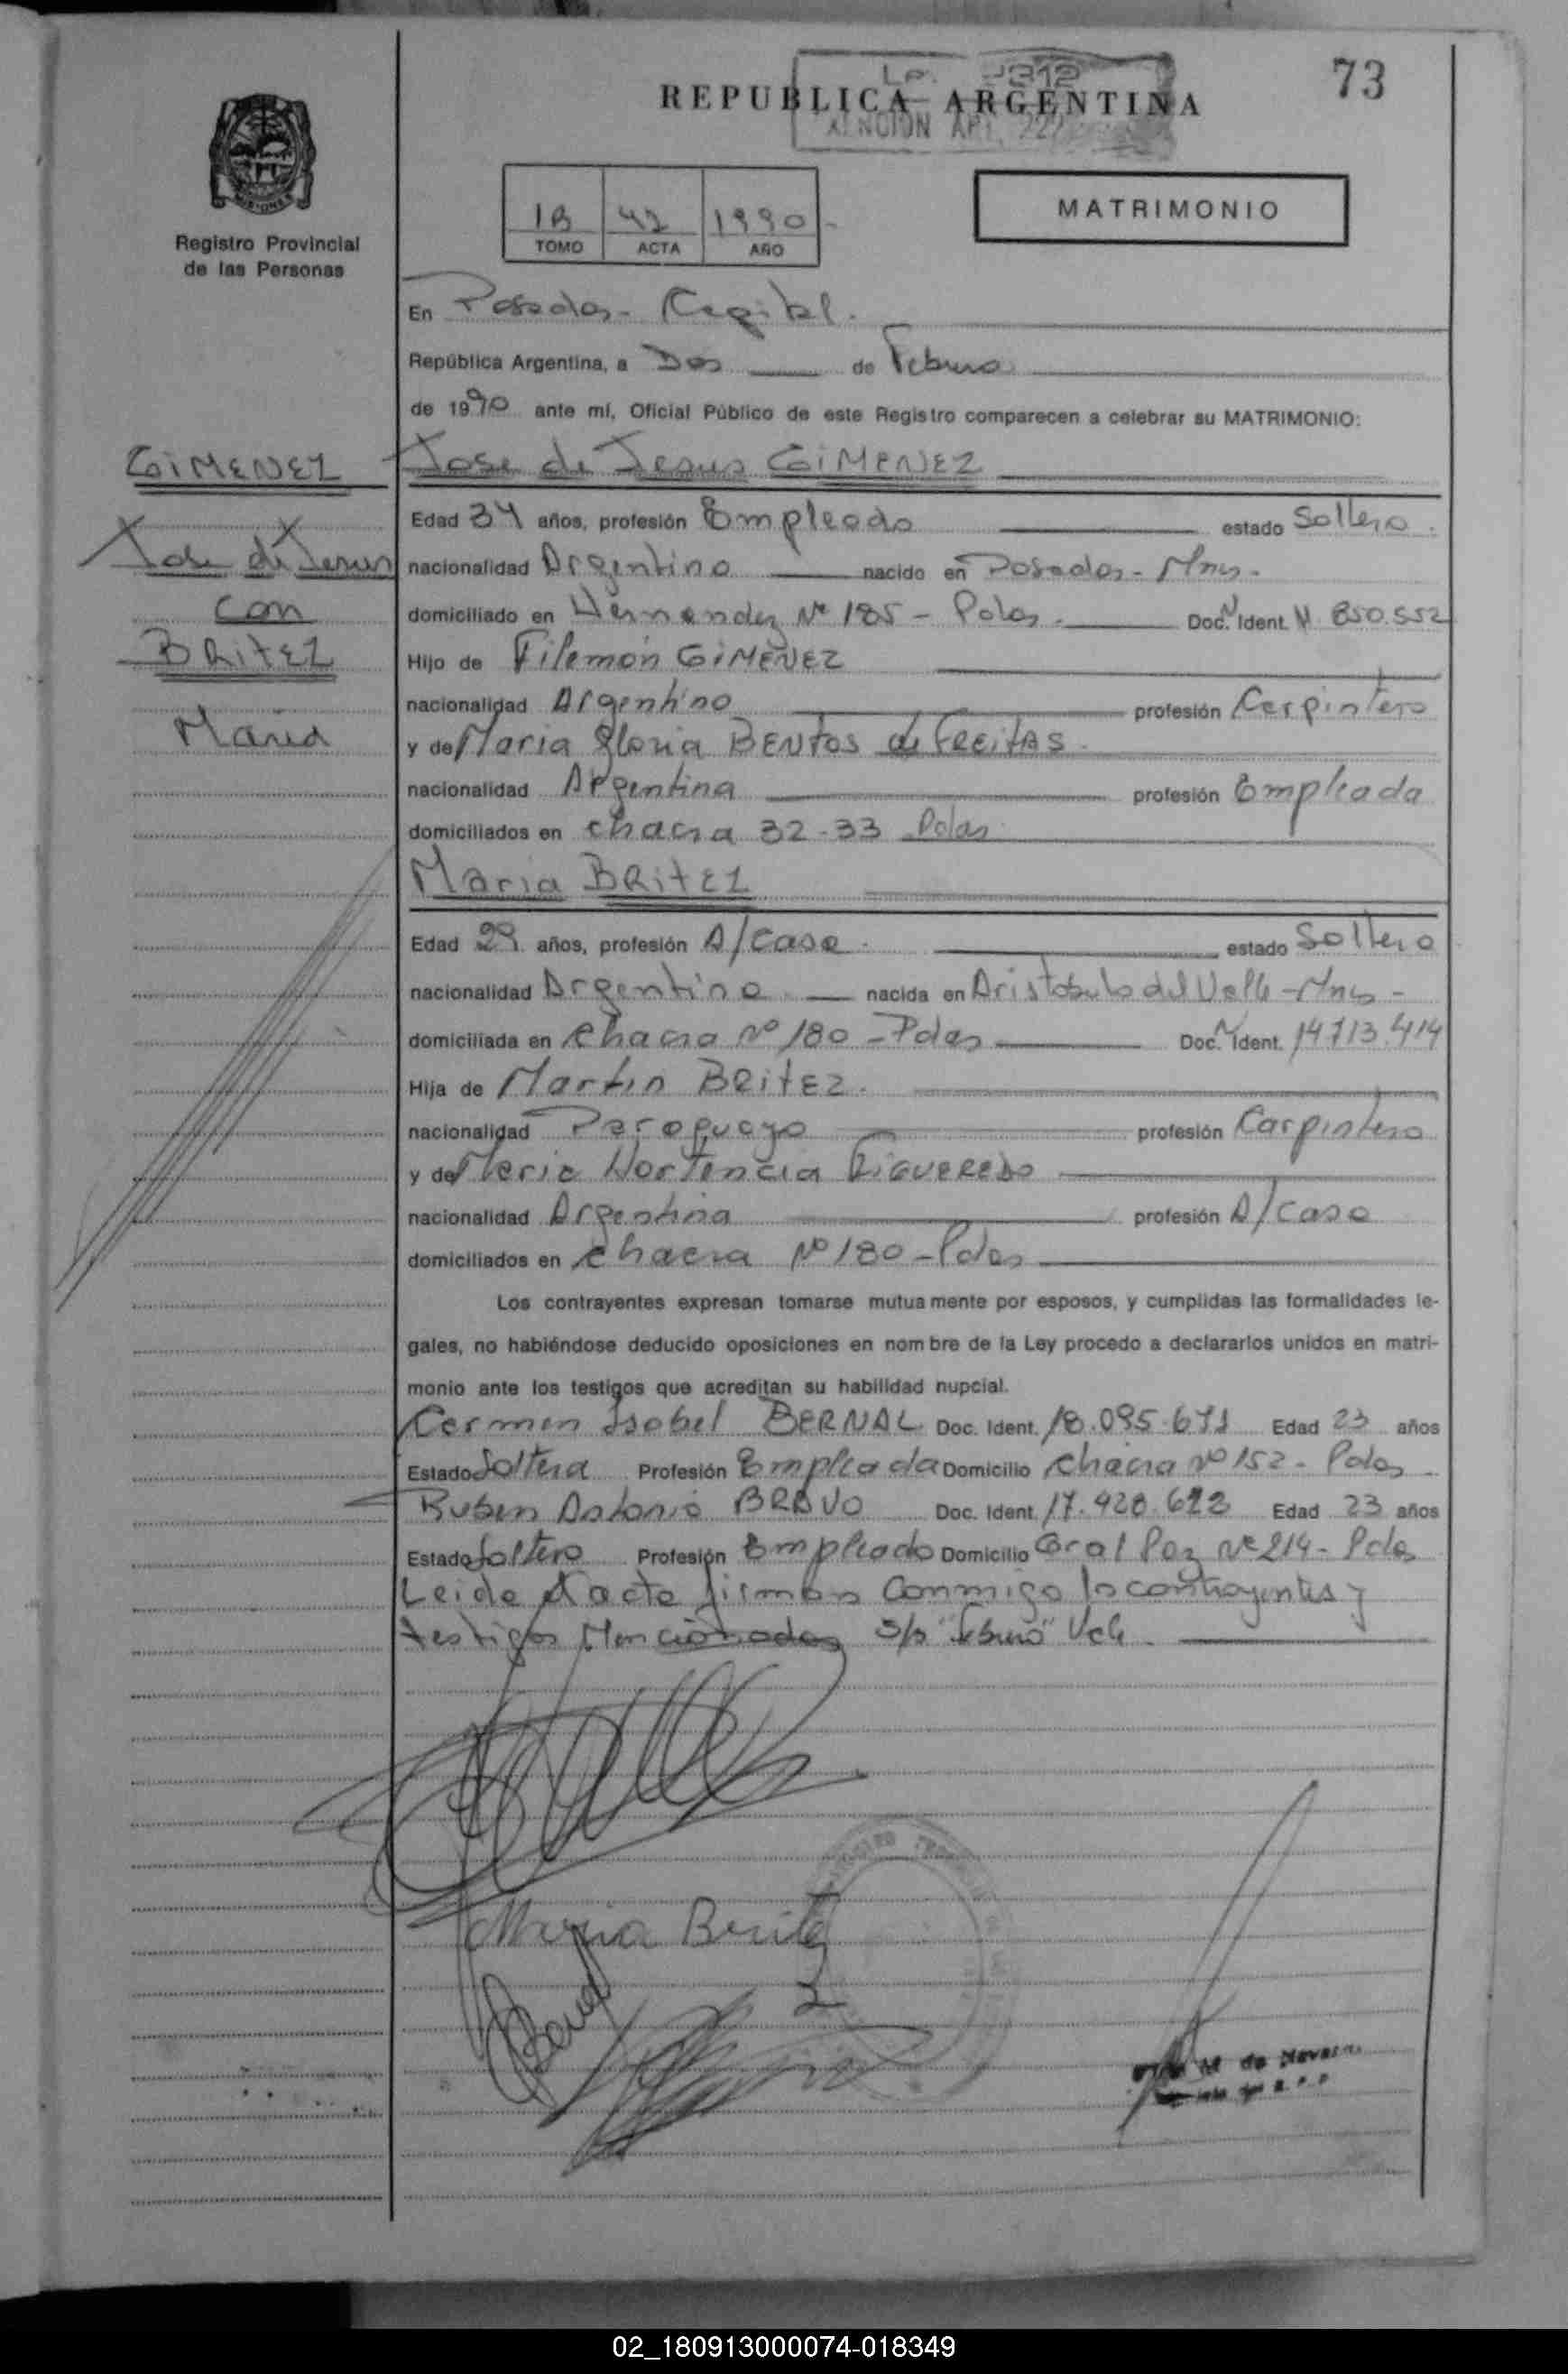 73
REPUBLICA ARGENTINA
MISIONES
Registro Provincial
de las Personas
1B 42 1990
TOMO ACTA AÑO
MATRIMONIO
En Posadas - Capital.
República Argentina, a Dos de Febrero
de 1990 ante mí, Oficial Público de este Registro comparecen a celebrar su MATRIMONIO:
GiMENEZ
Jose de Jesus
con
BRitEZ
Maria
Jose de Jesus GiMENEZ
Edad 34 años, profesión Empleado estado Soltero.
nacionalidad Argentino nacido en Posadas - Mnes.
domiciliado en Hernandez Nº 185 - Pdas. Doc. N Ident. 850.552
Hijo de Filemón GiMENEZ
nacionalidad Argentino profesión Carpintero
y de Maria Gloria BENtOS de FREitAS.
nacionalidad Argentina profesión Empleada
domiciliados en chacra 32-33 Pdas.
Maria BRitEZ
Edad 29 años, profesión A/casa. estado Soltera
nacionalidad Argentina nacida en Aristobulo del Valle - Mnes -
domiciliada en chacra Nº 180 - Pdas Doc. N Ident. 14.713.414
Hija de Martin BRitEZ.
nacionalidad Paraguayo profesión Carpintero
y de Maria Hortencia FiGUEREDO
nacionalidad Argentina profesión A/casa
domiciliados en chacra Nº 180 - Pdas
Los contrayentes expresan tomarse mutuamente por esposos, y cumplidas las formalidades le-
gales, no habiéndose deducido oposiciones en nombre de la Ley procedo a declararlos unidos en matri-
monio ante los testigos que acreditan su habilidad nupcial.
Carmen Isabel BERNAL Doc. Ident. 18.095.671 Edad 23 años
Estado Soltera Profesión Empleada Domicilio chacra Nº 152 - Pdas -
Ruben Antonio BRAVO Doc. Ident. 17.920.612 Edad 23 años
Estado Soltero Profesión Empleado Domicilio Gral Paz Nº 214 - Pdas
Leida el acta firman conmigo los contrayentes y
testigos Mencionados S/b "Febrero" Vale.
Maria Britez
M de Navarro
02_180913000074-018349